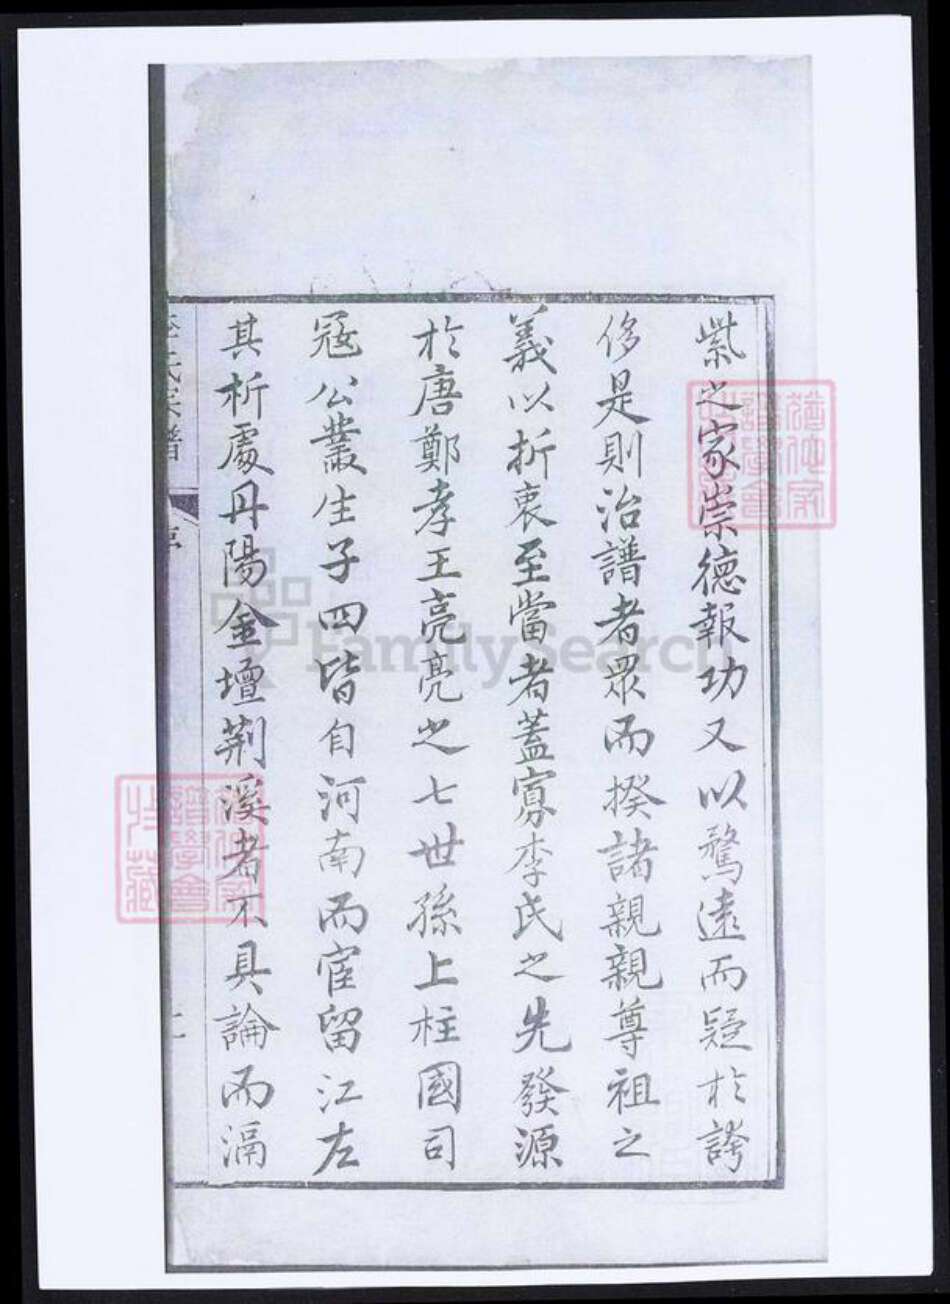 紫之家崇德報功又以騖遠而疑於誇
侈是則治譜者眾而揆諸親親尊祖之
義以折衷至當者蓋寡李氏之先發源
於唐鄭孝王亮亮之七世孫上柱國司
冦公叢生子四皆自河南而宦留江左
其析處丹陽金壇荆溪者不具論而滆
李氏宗譜
序
FamilySearch